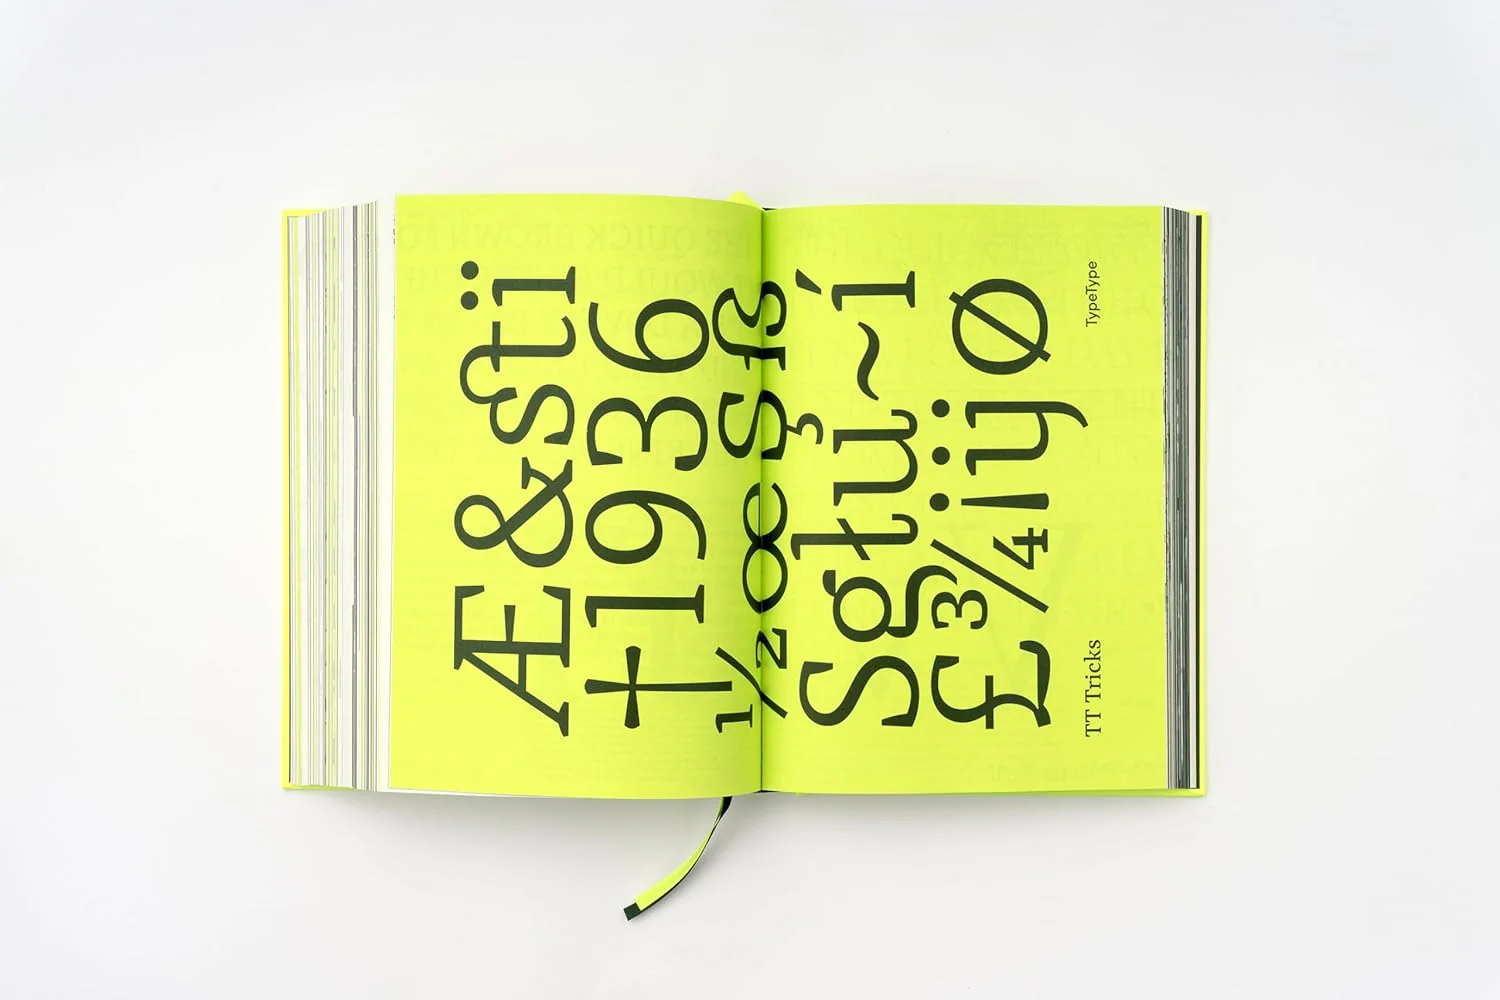 Æ&stï
†1936
½œŞß
Sgłu~í
£¾¡ÿØ
TT Tricks
TypeType